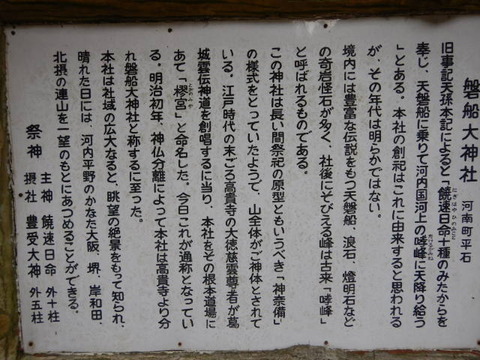 磐船大神社 河南町平石
旧事記天孫本記によると、饒速日命十種のみたからを
奉じ、天磐船に乗りて河内国河上の哮峰に天降り給う
」とある。本社の創祀はこれに由来すると思われる
が、その年代は明らかではない。
境内には豊富な伝説をもつ天磐船、浪石、燈明石など
の奇岩怪石が多く、社後にそびえる峰は古来「哮峰」
と呼ばれるものである。
この神社は長い間祭祀の原型ともいうべき「神奈備」
の様式をとっていたようで、山全体がご神体とされて
いる。江戸時代の末ごろ高貴寺の大徳慈雲尊者が葛
城雲伝神道を創唱するに当り、本社をその根本道場に
あて「樛宮」と命名した。今日これが通称となってい
る。明治初年、神仏分離によって本社は高貴寺より分
れ磐船大神社と称するに至った。
本社は社域の広大なると、眺望の絶景をもって知られ、
晴れた日には、河内平野のかなた大阪、堺、岸和田、
北摂の連山を一望のもとにあつめることができる。
祭神 主神 饒速日命 外十柱
摂社 豊受大神 外五柱